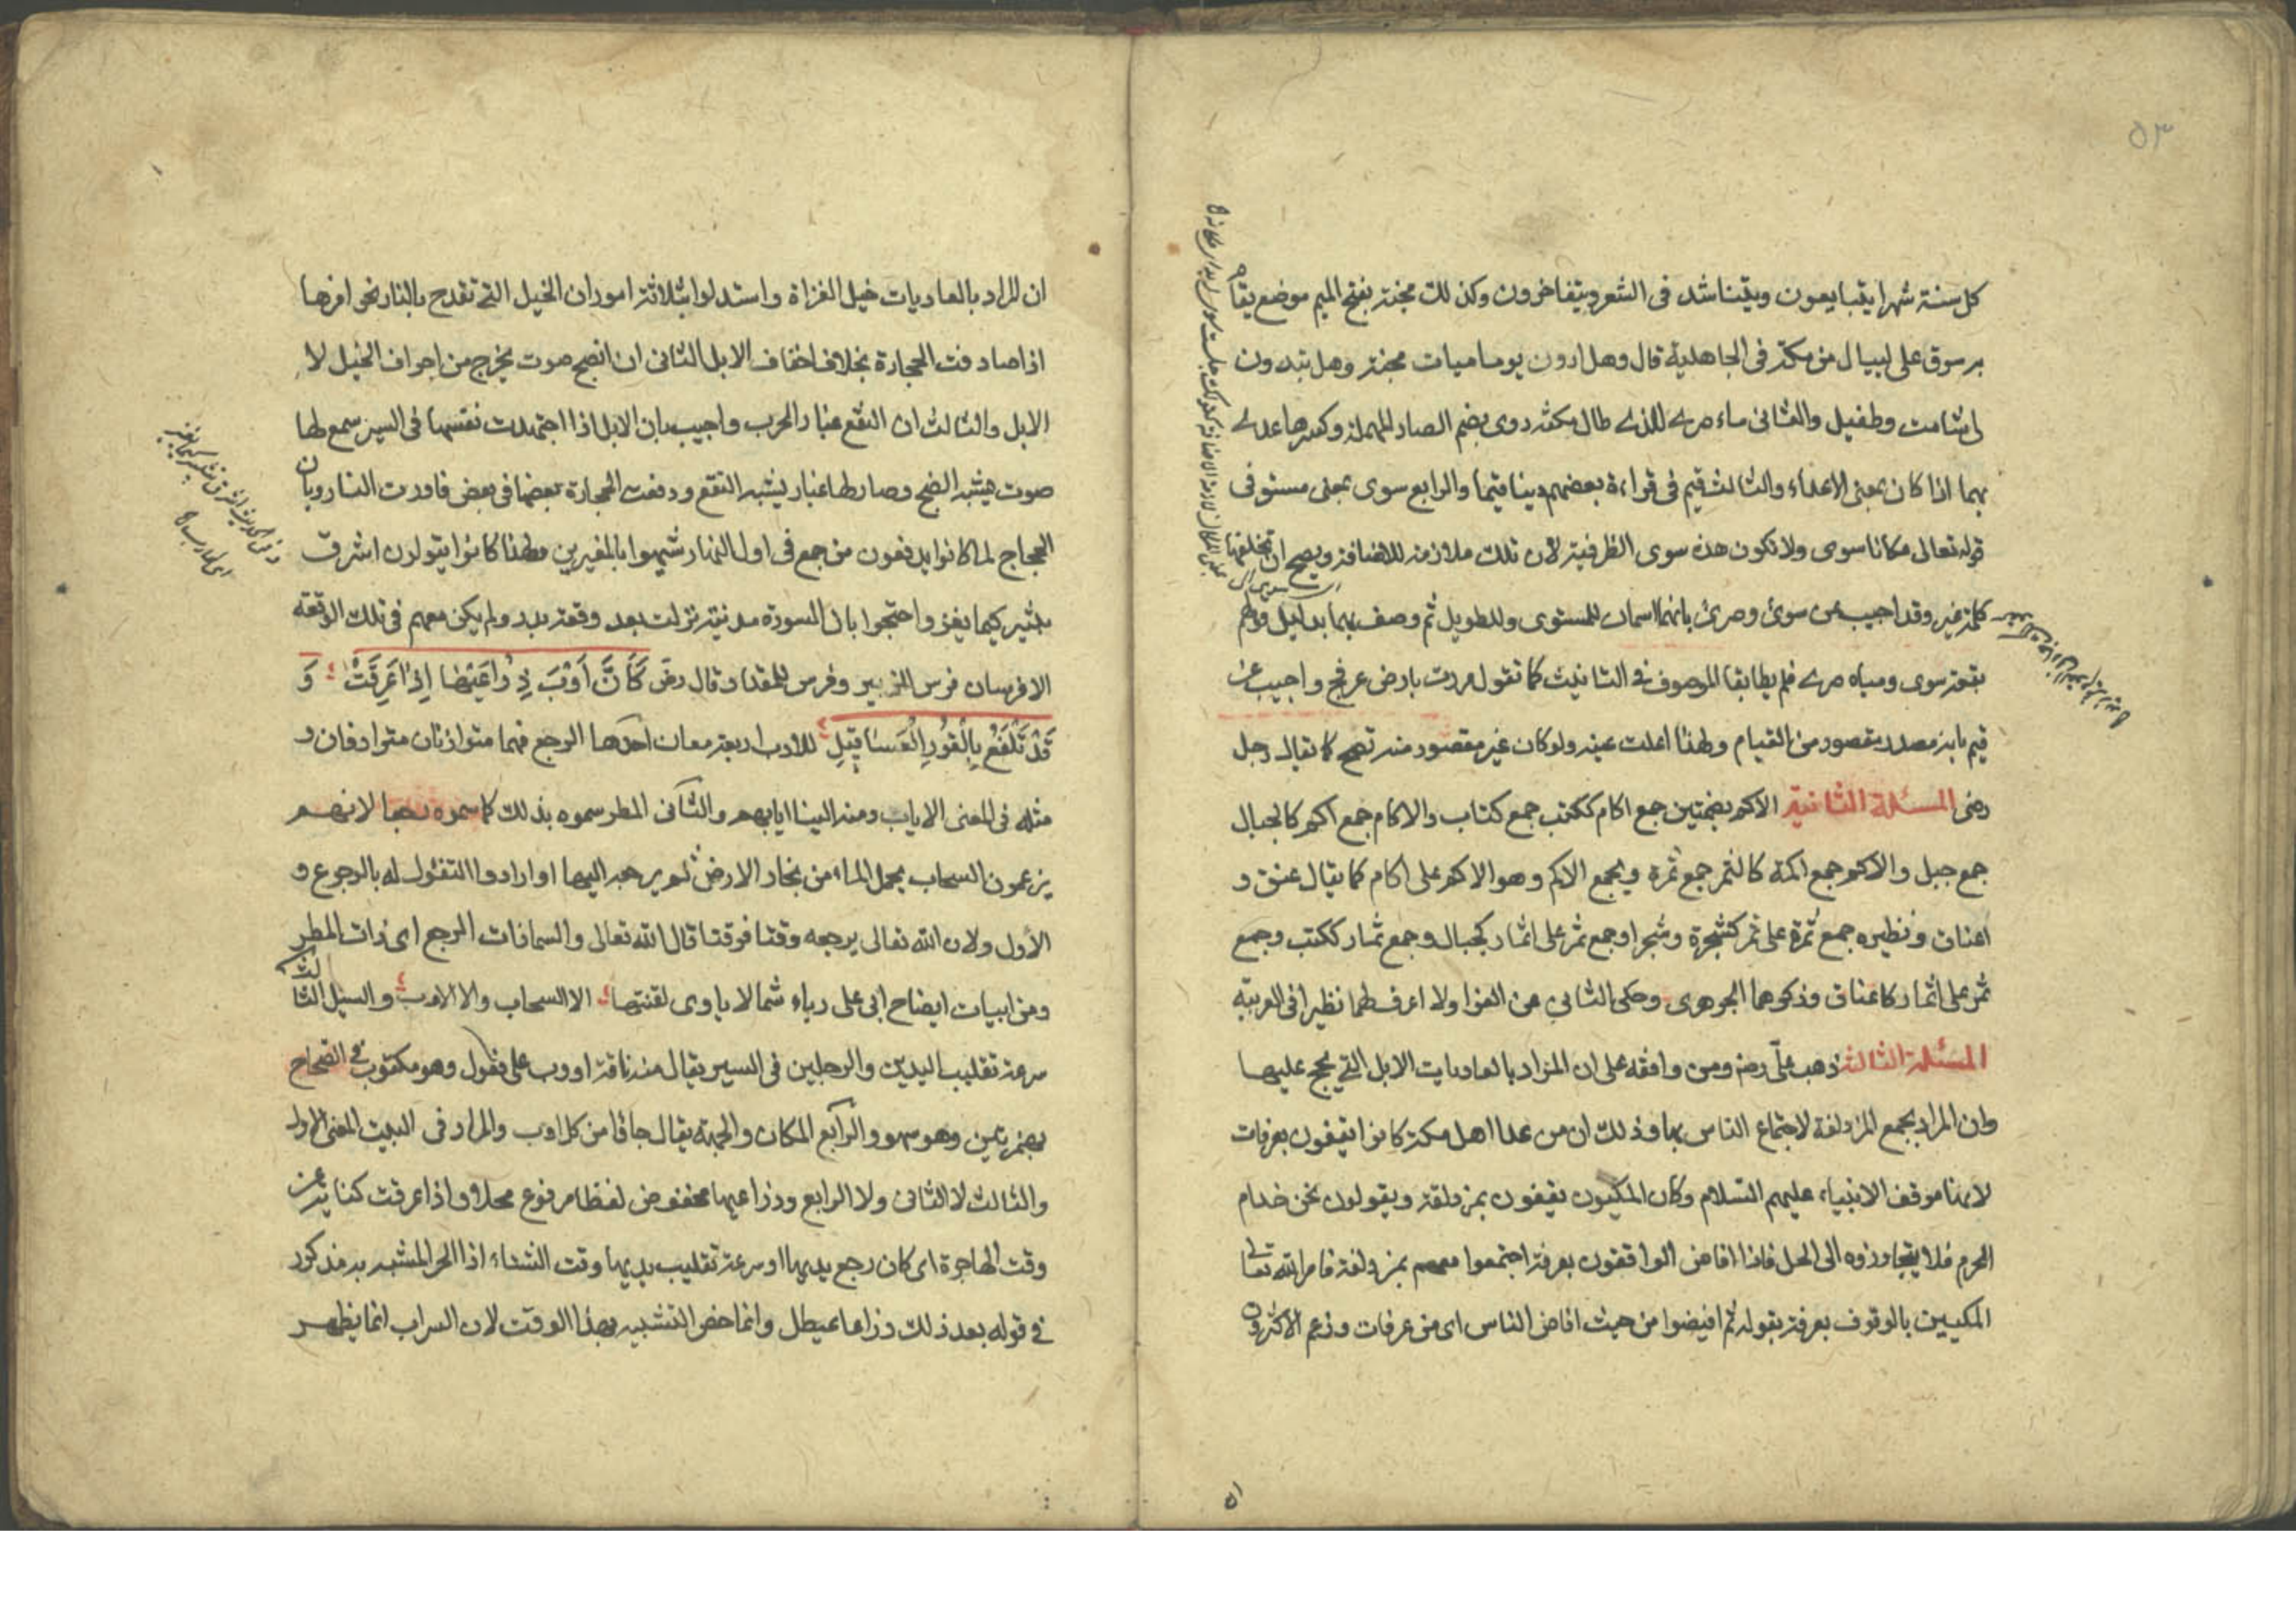 ٥٣
كل سنة شهرا يتبايعون ويتناشد في الشعر ويتفاخرون وكذلك مجنة بفتح الميم موضع يقا
بر سوق على لبيال من مكة في الجاهلية قال وهل اردن يوما ميات مجنة وهل تبدون
لي شامت وطفيل والثاني ماء صرى للذى طال مكثه روى بضم الصاد المهملة وكسرها عدى
بهما اذا كان بمعنى الاعداء والثالث قيم في قراءة بعضهم دينا قيما والرابع سوى بمعنى مستو في
قوله تعالى مكانا سوى ولا تكون هذه سوى الظرفية لان تلك ملازمة للاضافة ويصح ان تخلفها
كلمة غير وقد اجيب عن سوى وصرى بانهما اسمان للمستوى وللطويل ثم وصف بهما بدليل قولهم
بقعة سوى ومياه صرى فلم يطابقا الموصوف في التانيث كما تقول مررت بارض عرفج واجيب عن
قيم بانه مصدر مقصور من القيام ولهذا اعلت عينه ولو كان غير مقصور منه تصح كما يقال رجل
رضى المسئلة الثانية الاكم بضمتين جمع اكام ككتب جمع كتاب والاكام جمع اكم كالجبال
جمع جبل والاكم جمع اكمة كالثمر جمع ثمرة ويجمع الاكم وهو الاكم على اكام كما يقال عنق و
اعناق ونظيره جمع ثمرة على ثمر كشجرة وشجر وجمع ثمر على اثمار كجبال وجمع ثمار ككتب وجمع
ثمر على اثمار كاعناق وذكرهما الجوهرى وحكى الثاني عن الفرا ولا اعرف لهما نظيرا في العربية
المسئلة الثالثة ذهب علي رض ومن وافقه على ان المراد بالعاديات الابل التي يحج عليها
وان المراد بجمع المزدلفة لاجتماع الناس بها وذلك ان من عدا اهل مكة كانوا يقفون بعرفات
لانها موقف الانبياء عليهم السلام وكان المكيون يقفون بمزدلفة ويقولون نحن خدام
الحرم فلا يتجاوزوه الى الحل فاذا افاض الواقفون بعرفة اجتمعوا معهم بمزدلفة فامر الله تعا
المكيين بالوقوف بعرفة بقوله ثم افيضوا من حيث افاض الناس اى من عرفات وزعم الاكثرون
ان المراد بالعاديات خيل الغزاة واستدلوا بثلاثة امور ان الخيل التي تقدح بالنار نحو افرها
اذا صادفت الحجارة بخلاف اخفاف الابل الثاني ان الضبح صوت يخرج من اجواف الخيل لا
الابل والثالث ان النقع غبار الحرب واجيب بان الابل اذا اجتهدت نفسها في السير سمع لها
صوت يشبه الضبح وصار لها غبار يشبه النقع ودفعت الحجارة بعضها في بعض فاورت النار وبان
الحجاج لما كانوا يدفعون من جمع في اول النهار شبهوا بالمغيرين ولهذا كانوا يقولون اشرق
بثبير كيما يغز واحتجوا بان السورة مدنية نزلت بعد وقعة بدر ولم يكن معهم في تلك الوقعة
الا فرسان فرس الزبير وفرس للمقداد قال رض كَاَنَّ اَوْبَ ذِرَاعَيْهَا اِذَا عَرِقَتْ وَ
قَدْ تَلَفَّعَ بِالْقُورِ الْعَسَاقِيلُ للاوب اربعة معان احدها الرجع فهما متوازنان مترادفان و
مثله في المعنى الاياب ومنه الينا ايابهم والثاني المطر سموه بذلك كما سموه رجعا لانهم
يزعمون السحاب يحمل الماء من بخار الارض ثم يرجعه اليها او ارادوا التفئول له بالرجوع و
الأول ولان الله تعالى يرجعه وقتا فوقتا قال الله تعالى والسما ذات الرجع اى ذات المطر
ومن ابيات ايضاح ابي على رباء شما لا ياوى لقنتها الا السحاب والا الاوب والسبل الثالث
سرعة تقليب اليدين والرجلين في السير يقال منه ناقة اووب على فعول وهو مكتوب في الصحاح
بهمزتين وهو سهو والرابع المكان والجهة يقال جاؤا من كل اوب والمراد في البيت المعنى الاول
والثالث لا الثاني ولا الرابع وذراعيها مخفوض لفظا مرفوع محلا واذا عرقت كناية عن
وقت الهاجرة اى كان رجع يديها او سرعة تقليب يديها وقت اشتداد الحر المشبه به مذكور
في قوله بعد ذلك ذراعا عيطل وانما خض التشبيه بهذا الوقت لان السراب انما يظهر